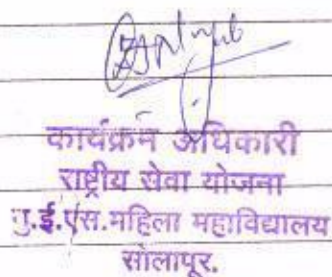 कार्यक्रम अधिकारी
राष्ट्रीय सेवा योजना
यु.ई.एस.महिला महाविद्यालय
सोलापूर.